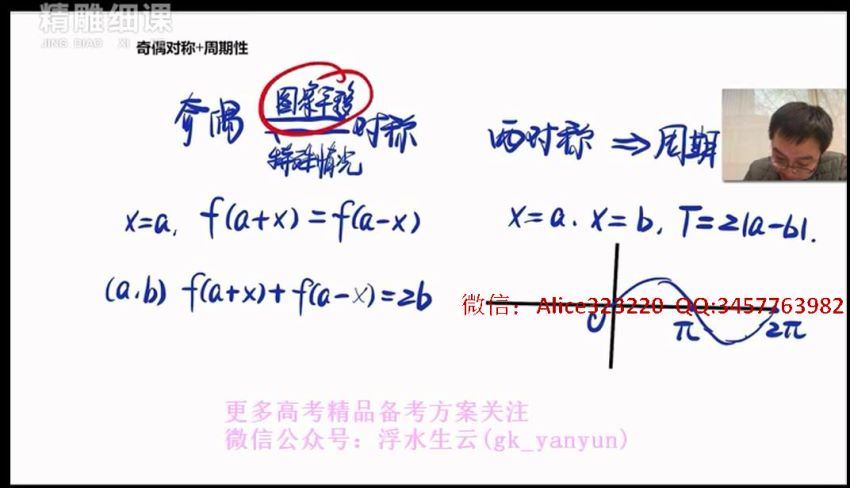 精雕细课
JING DIAO XI
奇偶对称+周期性
奇偶 图象平移 对称
特殊情况
两对称 ⇒ 周期
x=a, f(a+x)=f(a-x)
x=a. x=b, T=2|a-b|.
(a,b) f(a+x)+f(a-x)=2b
微信: Alice323220 QQ:3457763982
O π 2π
更多高考精品备考方案关注
微信公众号: 浮水生云(gk_yanyun)